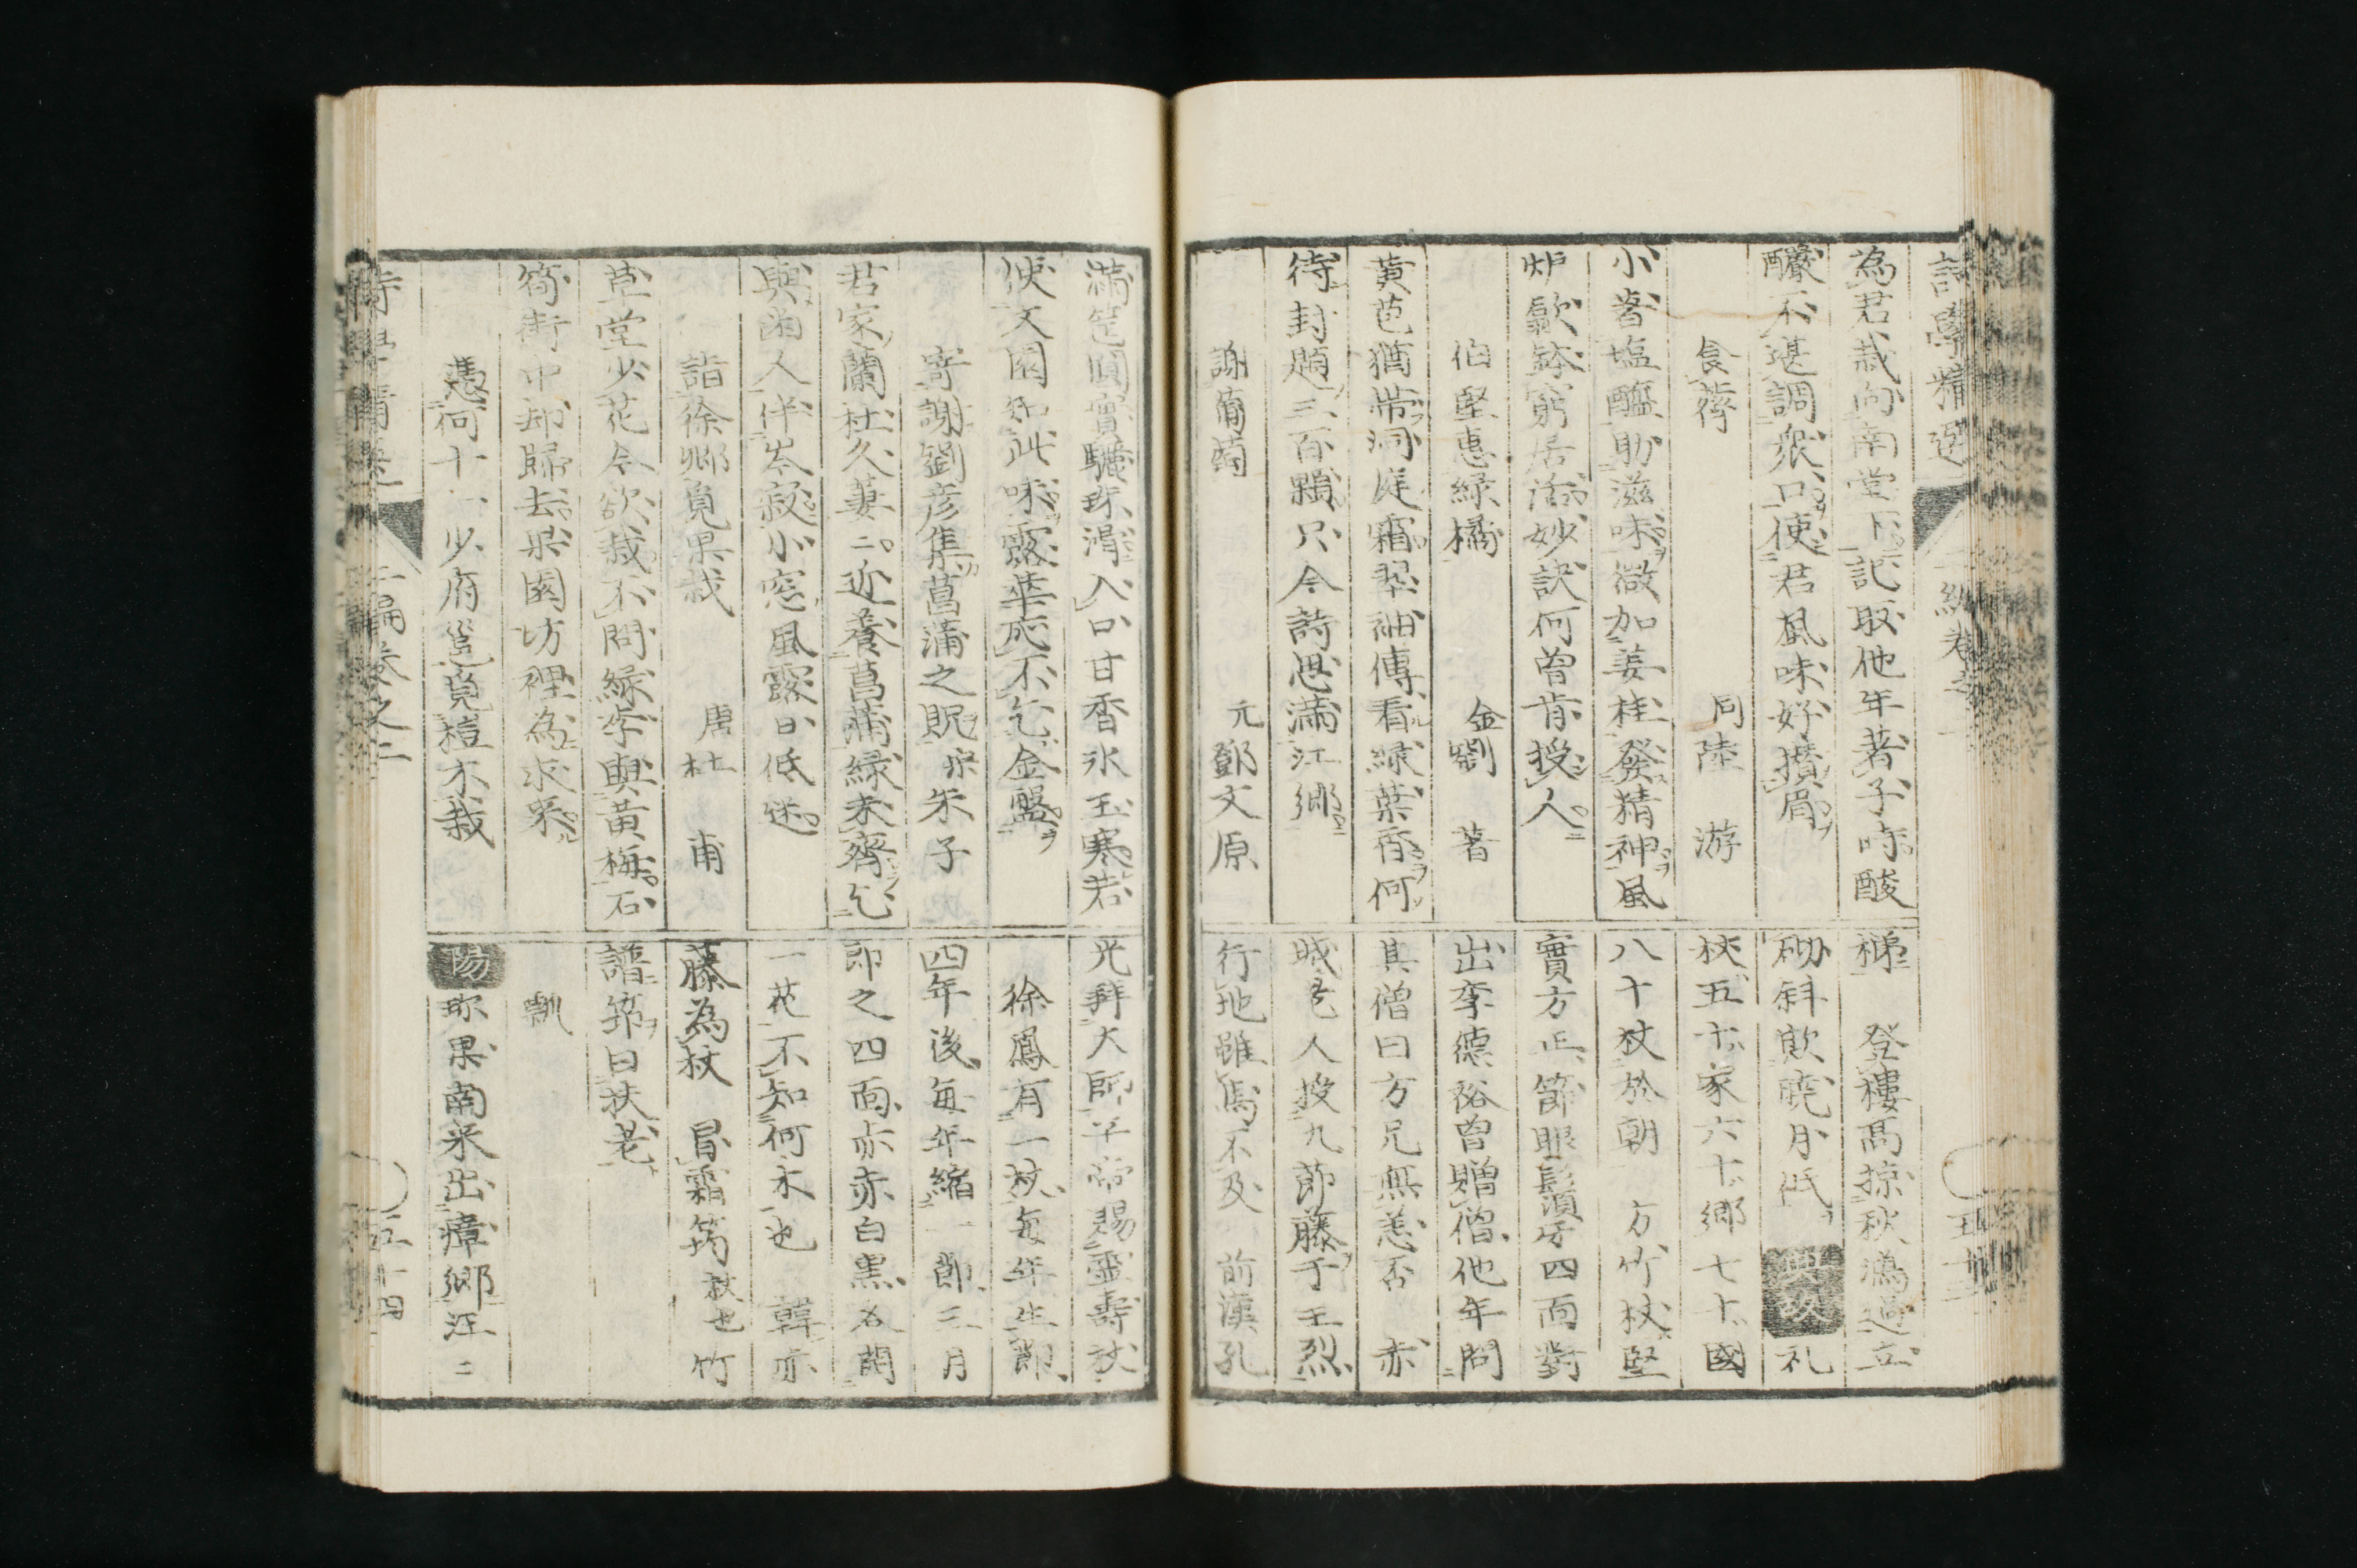 為君栽向南堂下記取他年著子時酸
釅不堪調衆口使君風味好攅眉
食薺 同陸 游
小著塩醯助滋味微加姜桂發精神風
炉歙鉢窮居活妙訣何曽肯授人
伯堅惠緑橘 金劉 著
黄苞猶帯洞庭霜翠袖傳看緑葉香何
待封題三百顆只今詩思満江郷
謝葡萄 元鄧文原
梯 登樓高掠秋鴻過立
砌斜欺暁月低 典故 礼
杖五十家六十郷七十國
八十杖於朝 方竹杖堅
實方正節眼鬚牙四面對
出李德裕曽贈僧他年問
其僧曰方兄無恙否 赤
城老人授九節藤于王烈
行地雖馬不及 前漢孔
満筐圓實驪珠滑入口甘香氷玉寒若
使文園知此味露華応不乞金盤
寄謝劉彦集菖蒲之貺 宋朱子
君家蘭杜久萋二近養菖蒲緑未齊乞
與幽人伴岑寂小窓風露日低迷
詣徐郷覓果栽 唐杜 甫
草堂少花今欲栽不問緑李與黄梅石
筍街中却歸去果園坊裡為求来
憑何十一少府邕覓榿木栽
光拜大師平帝賜霊壽杖
徐鳳有一杖毎年生節
四年後毎年縮一節三月
即之四面亦赤白黒各開
一花不知何木也 韓亦
藤為杖 冐霜筇杖也竹
譜筇曰扶老
瓢
陽 珎果南来出瘴郷江二
詩學精選 二編卷之二 五十三
詩學精選 二編卷之二 五十四